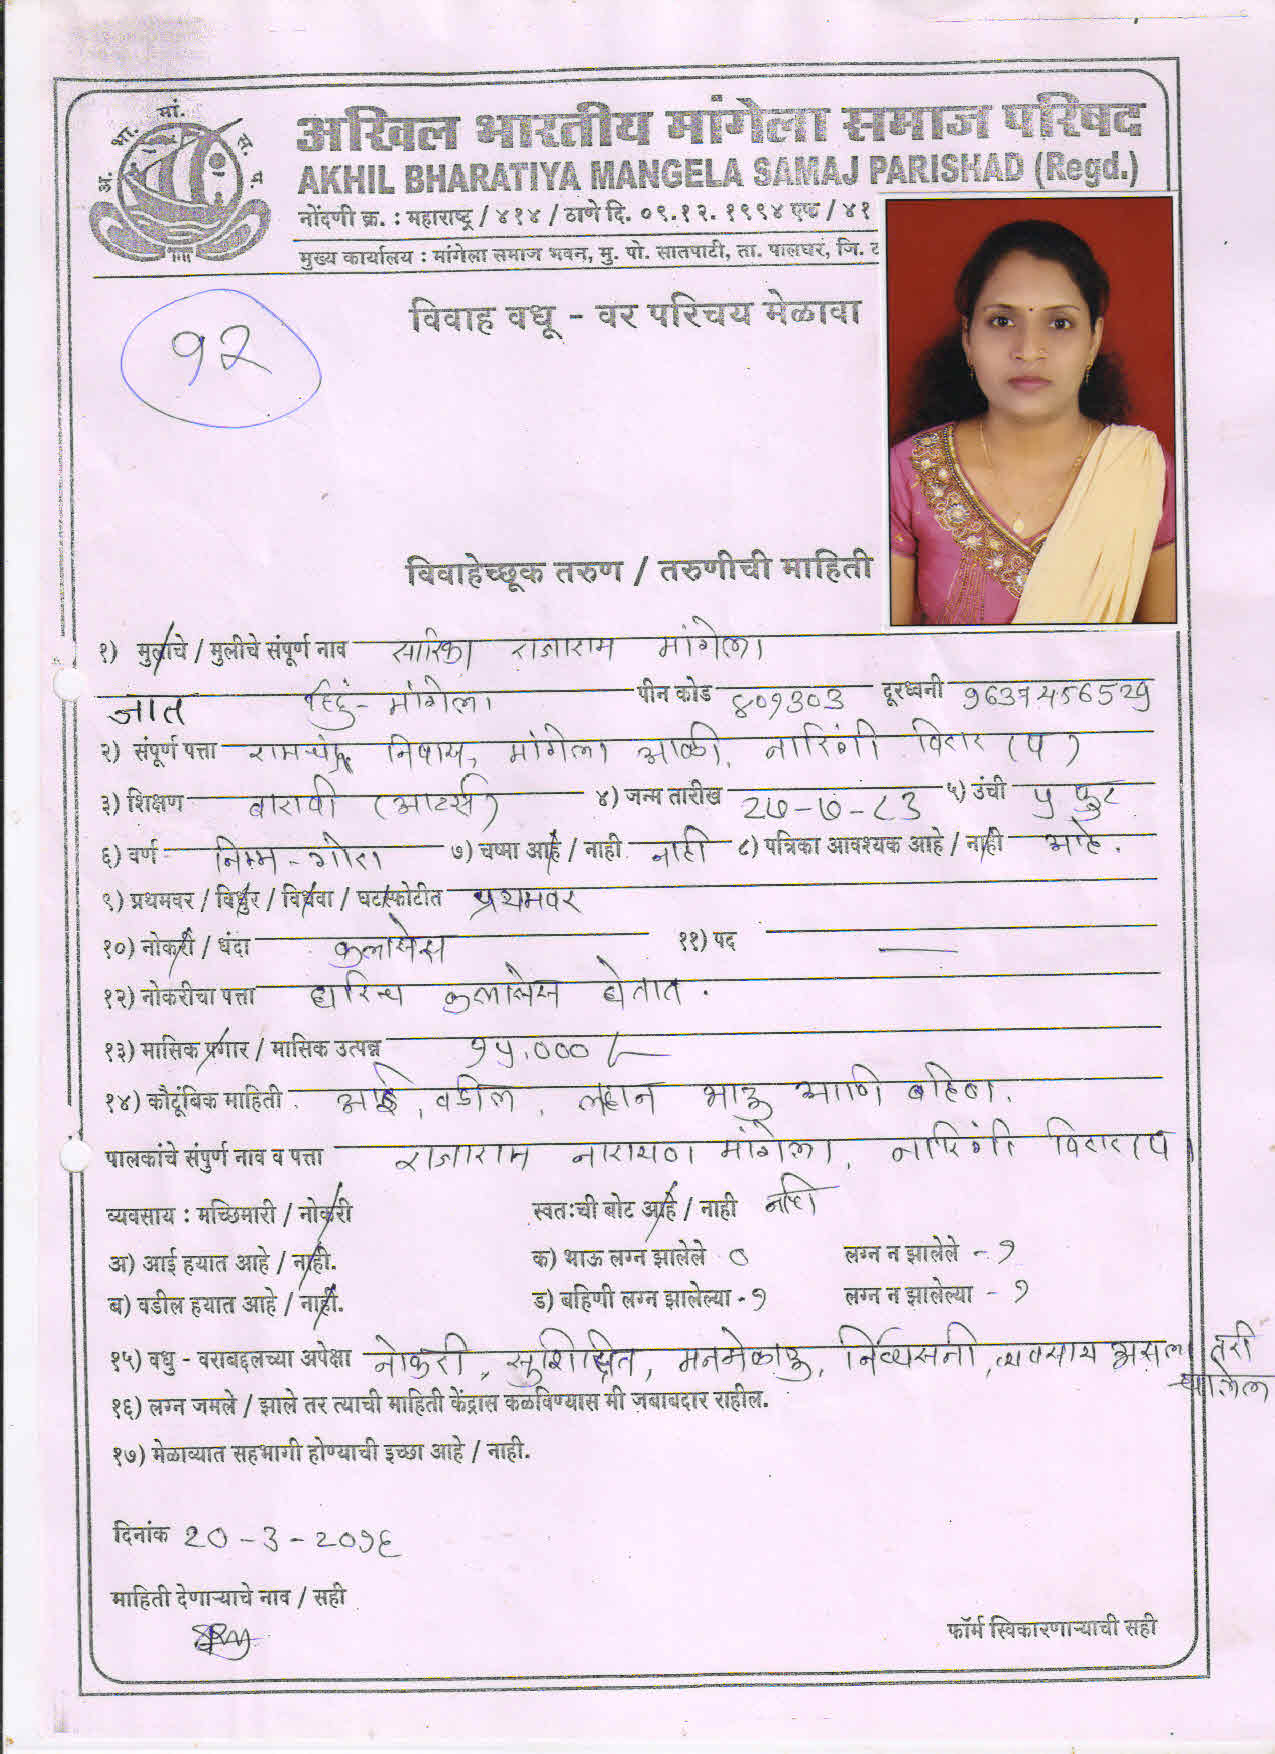 अ. भा. मां. स. प.
अखिल भारतीय मांगेला समाज परिषद
AKHIL BHARATIYA MANGELA SAMAJ PARISHAD (Regd.)
नोंदणी क्र. : महाराष्ट्र / ४१४ / ठाणे दि. ०९.१२. १९९४ एफ / ४१
मुख्य कार्यालय : मांगेला समाज भवन, मु. पो. सातपाटी, ता. पालघर, जि. ठ
१२
विवाह वधू - वर परिचय मेळावा
विवाहेच्छूक तरुण / तरुणीची माहिती
१) मुलाचे / मुलीचे संपूर्ण नाव सारिका राजाराम मांगेला
जात हिंदु - मांगेला पीन कोड ४०१३०३ दूरध्वनी
२) संपूर्ण पत्ता रामचंद्र निवास, मांगेला आळी, नारिंगी विरार (प)
३) शिक्षण बारावी (आर्टस) ४) जन्म तारीख २७-७-८३ ५) उंची ५ फुट
६) वर्ण निम्म - गोरा ७) चष्मा आहे / नाही नाही ८) पत्रिका आवश्यक आहे / नाही आहे.
९) प्रथमवर / विधुर / विधवा / घटस्फोटीत प्रथमवर
१०) नोकरी / धंदा क्लासेस ११) पद —
१२) नोकरीचा पत्ता घरिच क्लासेस घेतात.
१३) मासिक पगार / मासिक उत्पन्न १५,०००/-
१४) कौटूंबिक माहिती आई, वडील, लहान भाऊ आणि बहिण.
पालकांचे संपुर्ण नाव व पत्ता राजाराम नारायण मांगेला, नारिंगी विरार प
व्यवसाय : मच्छिमारी / नोकरी स्वतःची बोट आहे / नाही नाही
अ) आई हयात आहे / नाही. क) भाऊ लग्न झालेले ० लग्न न झालेले - १
ब) वडील हयात आहे / नाही. ड) बहिणी लग्न झालेल्या - १ लग्न न झालेल्या - १
१५) वधु - वराबद्दलच्या अपेक्षा नोकरी, सुशिक्षित, मनमेळाऊ, निर्व्यसनी, व्यवसाय असला तरी
चालेल
१६) लग्न जमले / झाले तर त्याची माहिती केंद्रास कळविण्यास मी जबाबदार राहील.
१७) मेळाव्यात सहभागी होण्याची इच्छा आहे / नाही.
दिनांक २०-३-२०१६
माहिती देणाऱ्याचे नाव / सही
फॉर्म स्विकारणाऱ्याची सही